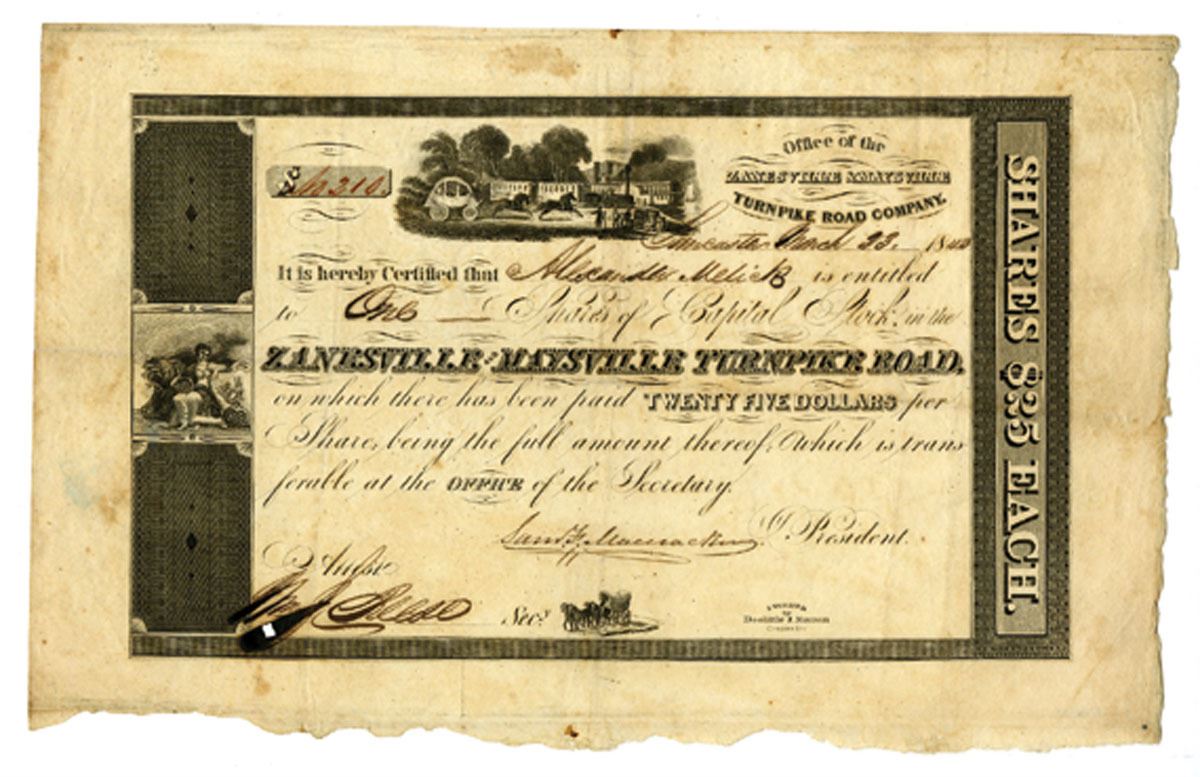 No 210
Office of the
ZANESVILLE & MAYSVILLE
TURNPIKE ROAD COMPANY.
Lancaster March 23 1840
It is hereby Certified that Alexander Melick is entitled
to One Shares of Capital Stock in the
ZANESVILLE AND MAYSVILLE TURNPIKE ROAD,
on which there has been paid TWENTY FIVE DOLLARS per
Share, being the full amount thereof, which is trans
ferable at the OFFICE of the Secretary.
Saml F. Maccracken President.
Attest
Reese Secy
Doolittle & Munson
SHARES $25 EACH.